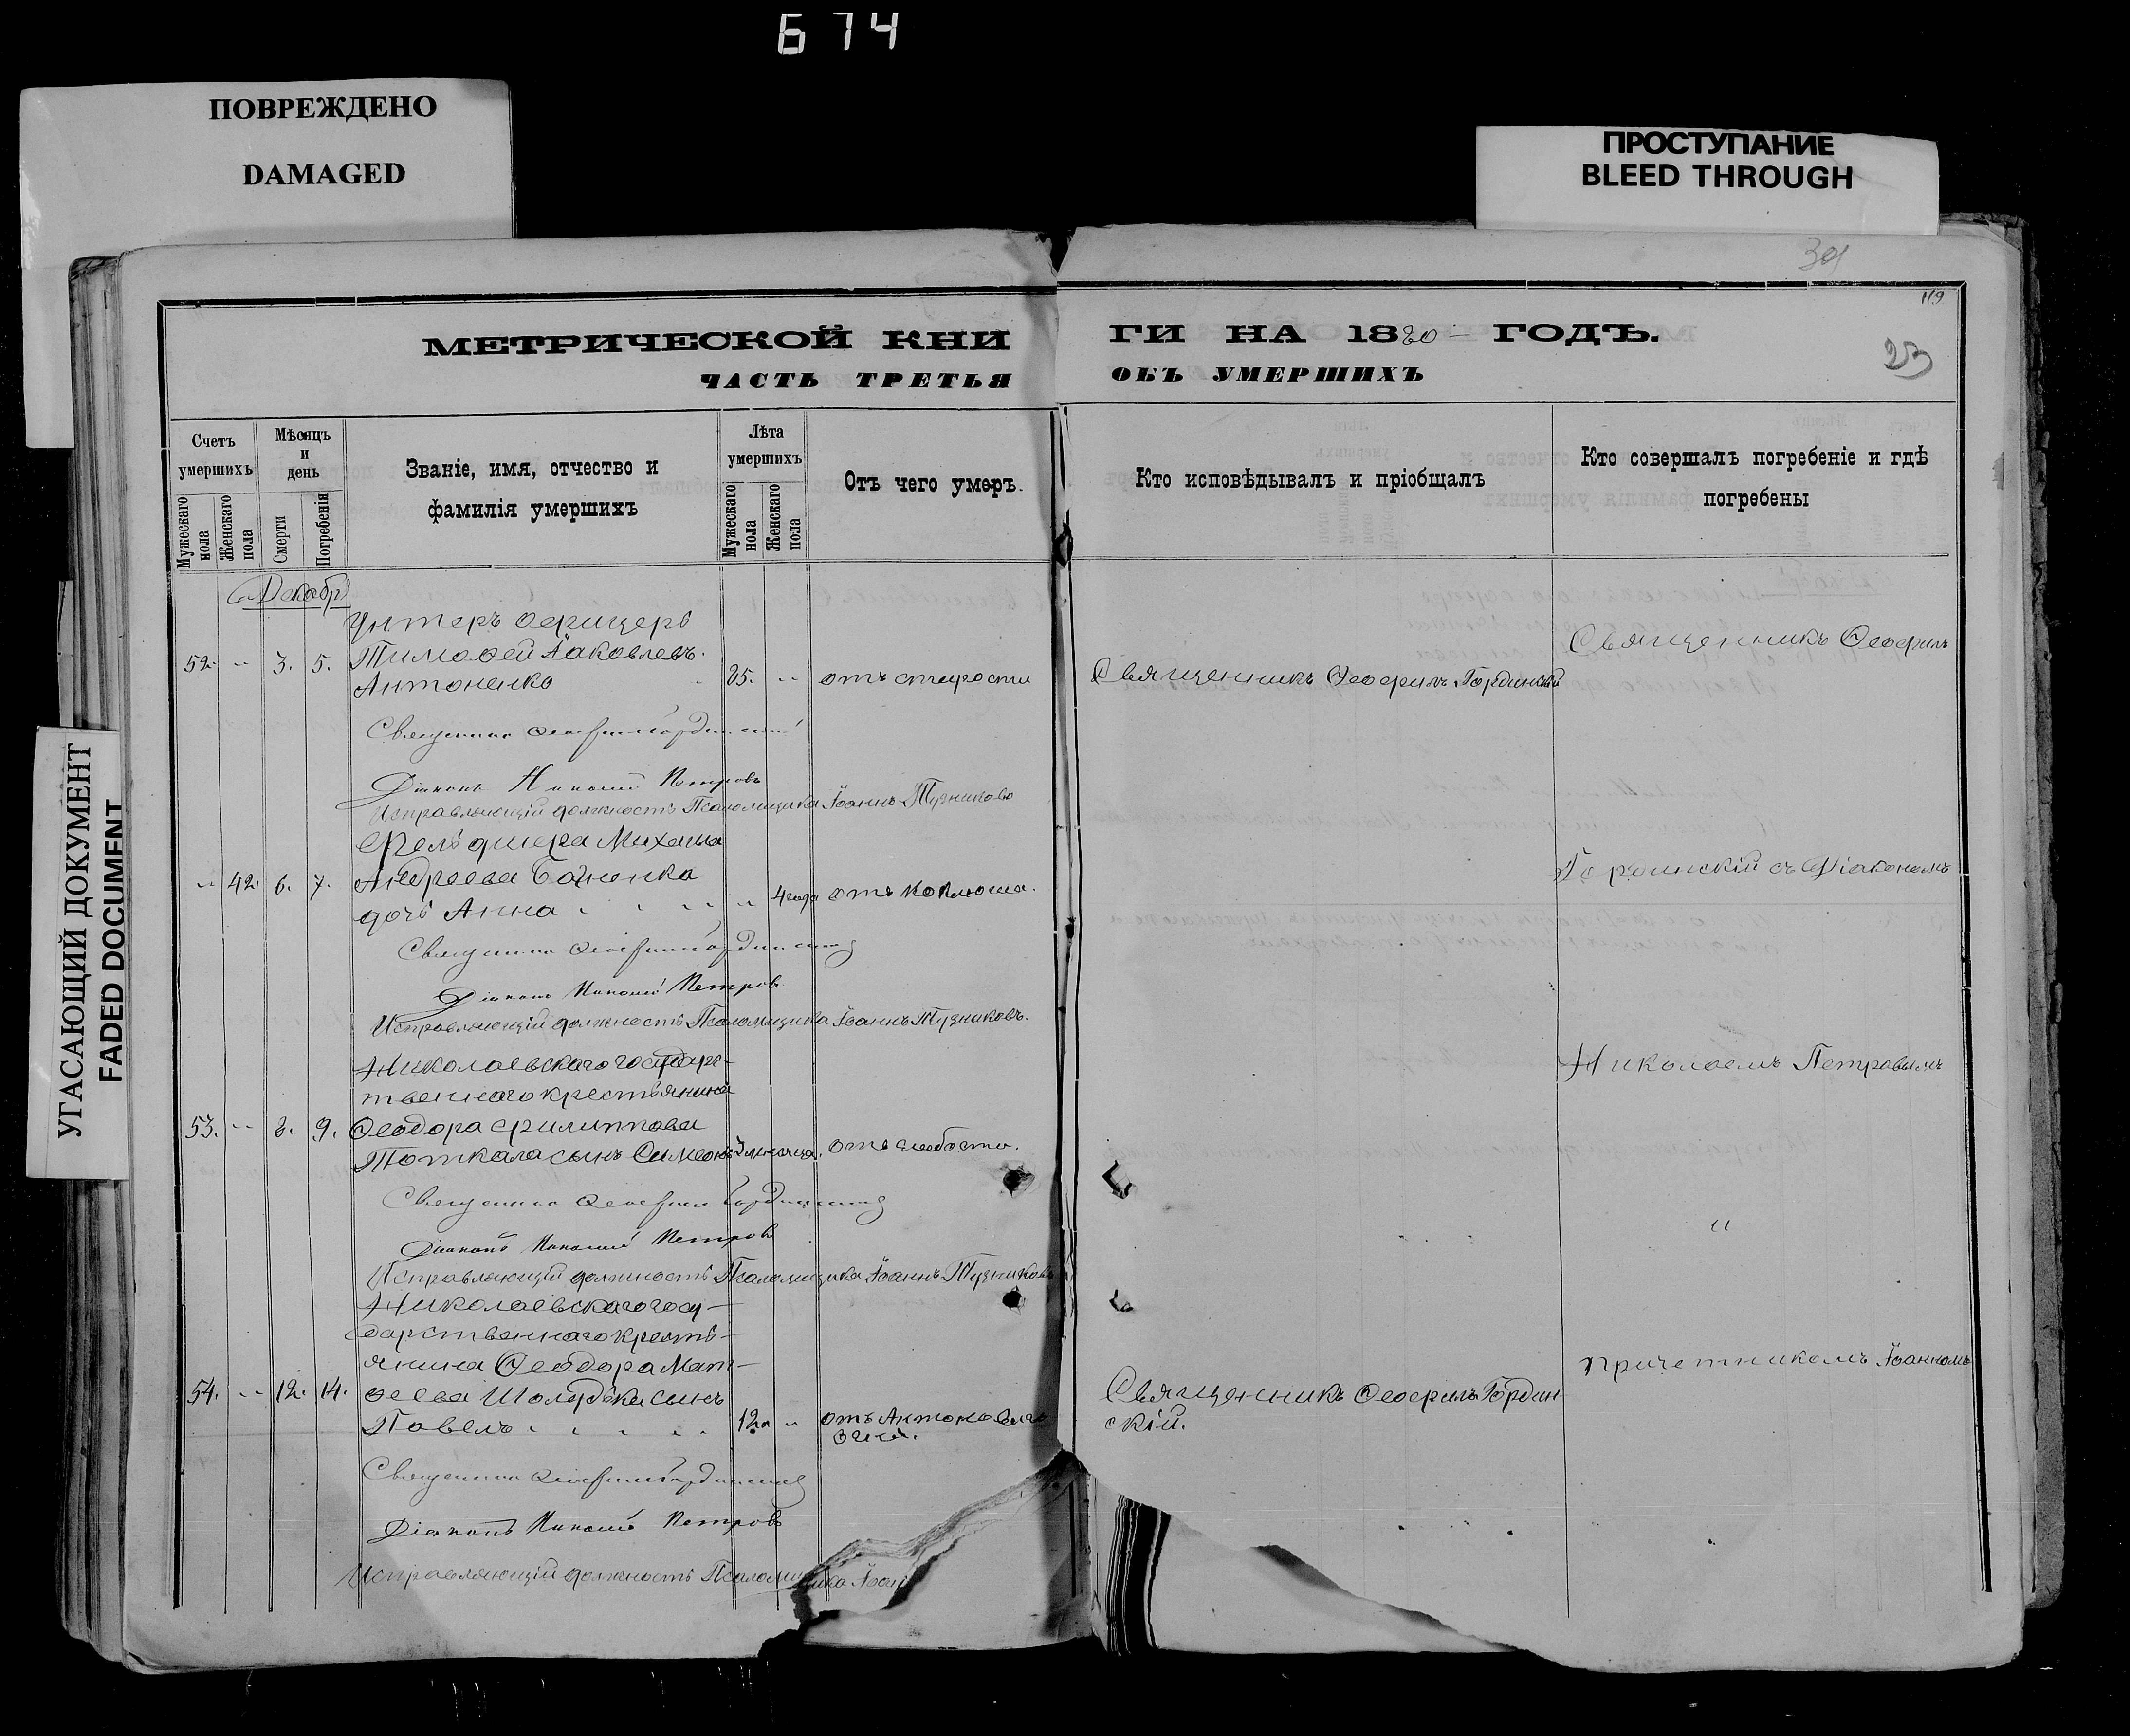 674
ПОВРЕЖДЕНО
DAMAGED
ПРОСТУПАНИЕ
BLEED THROUGH
УГАСАЮЩИЙ ДОКУМЕНТ
FADED DOCUMENT
119
23
МЕТРИЧЕСКОЙ КНИ
ГИ НА 1880 ГОДЪ.
ЧАСТЬ ТРЕТЬЯ
ОБЪ УМЕРШИХЪ
Счетъ умершихъ
Мужескаго пола
Женскаго пола
Мѣсяцъ и день
Смерти
Погребенія
Званіе, имя, отчество и
фамилія умершихъ
Лѣта умершихъ
Мужескаго пола
Женскаго пола
Отъ чего умеръ.
Кто исповѣдывалъ и пріобщалъ
Кто совершалъ погребеніе и гдѣ
погребены
Декабр
Унтеръ офицеръ
52. " 3. 5. Тимофей Іаковлевъ
Антоненко 85. " отъ старости
Священникъ Ѳеофилъ Гординскій
Священникъ Ѳеофилъ
Священникъ Ѳеофилъ Гординскій
Діаконъ Николай Петровъ
Исправляющій должность Псаломщика Іоаннъ Тузниковъ
Фельдшера Михаила
" 42. 6. 7. Андреева
дочь Анна " 4 года отъ коклюша.
Гординскій съ Діакономъ
Священникъ Ѳеофилъ Гординскій
Діаконъ Николай Петровъ
Исправляющій должность Псаломщика Іоаннъ Тузниковъ.
Николаевскаго государс-
твеннаго крестьянина
Николаемъ Петровымъ
53. " 8. 9. Ѳеодора Филиппова
Тоткала сынъ Симеонъ 3 месяца. отъ слабости.
Священникъ Ѳеофилъ Гординскій
Діаконъ Николай Петровъ
"
Исправляющій должность Псаломщика Іоаннъ Тузниковъ
Николаевскаго госу-
дарственнаго кресть-
янина Ѳеодора Мат-
Причетникомъ Іоанномъ
54. " 12. 14. ѳеева Шолудька сынъ
Павелъ 12. " отъ Антонова
огня.
Священникъ Ѳеофилъ Гордин
скій.
Священникъ Ѳеофилъ Гординскій
Діаконъ Николай Петровъ
Исправляющій должность Псаломщика Іоан